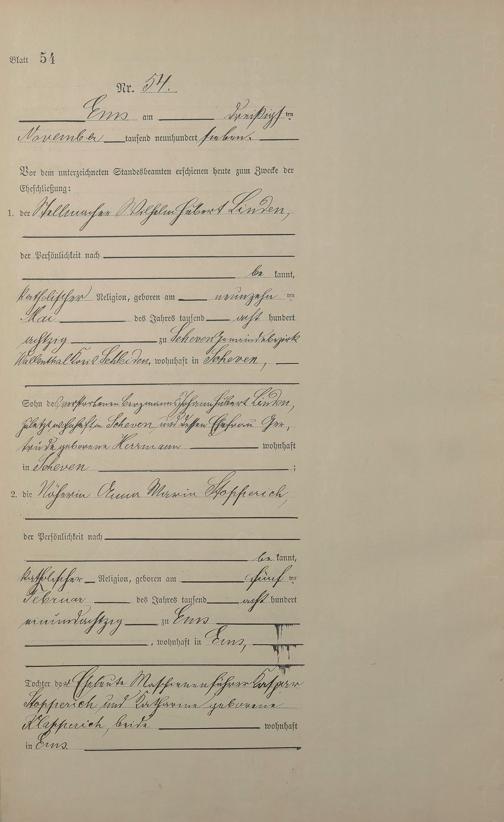 Blatt 54
Nr. 54.
Ems am dreißigsten
November tausend neunhundert sieben.
Vor dem unterzeichneten Standesbeamten erschienen heute zum Zwecke der
Eheschließung:
1. der Stellmacher Wilhelm Hubert Linden,
der Persönlichkeit nach
be kannt,
katholischer Religion, geboren am neunzehn ten
Mai des Jahres tausend acht hundert
achtzig zu Scheven Gemeindebezirk
Wallenthal Kreis Schleiden, wohnhaft in Scheven,
Sohn des verstorbenen Bergmanns Johann Hubert Linden,
zuletzt wohnhaft in Scheven und dessen Ehefrau Ger,
trude geborene Herrmann wohnhaft
in Scheven ;
2. die Näherin Anna Maria Stopperich,
der Persönlichkeit nach
be kannt,
katholischer Religion, geboren am fünf ten
Februar des Jahres tausend acht hundert
einundachtzig zu Ems
, wohnhaft in Ems,
Tochter der Eheleute Maschienenführer Kaspar
Stopperich und Katharine geborene
Klapperich, beide wohnhaft
in Ems